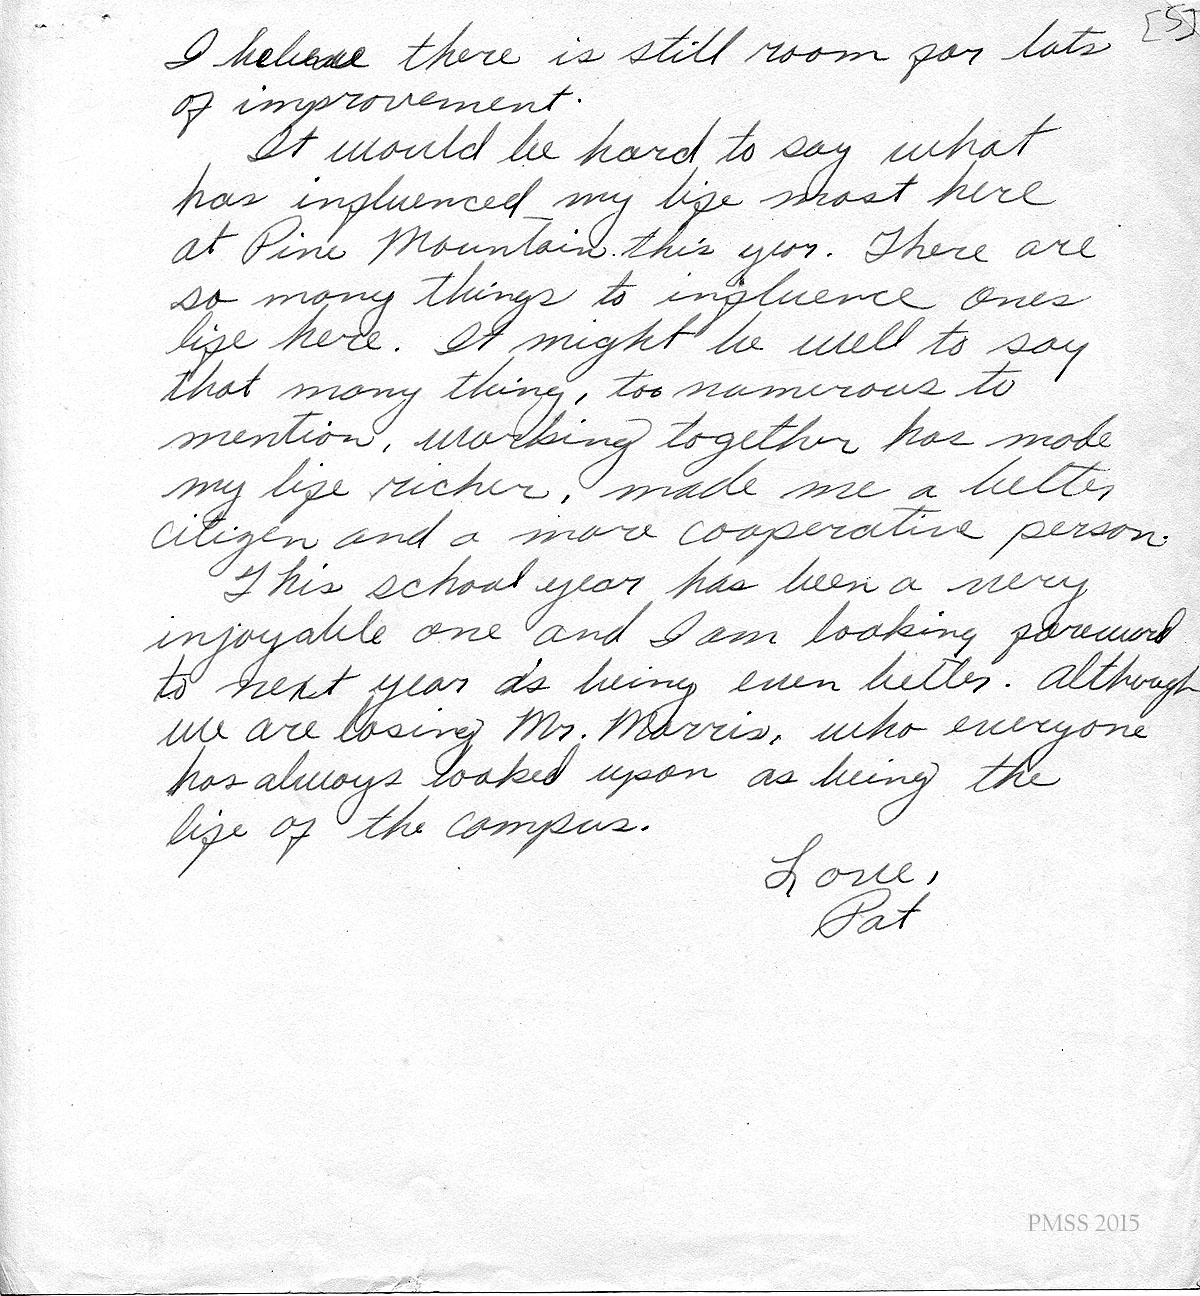 [5]
I believe there is still room for lots
of improvement.
It would be hard to say what
has influenced my life most here
at Pine Mountain this year. There are
so many things to influence ones
life here. It might be well to say
that many thing, too numerous to
mention, working together has made
my life richer, made me a better
citizen and a more cooperative person.
This school year has been a very
injoyable one and I am looking foreward
to next year as being even better. Although
we are losing Mr. Morris, who everyone
has always looked upon as being the
life of the campus.
Love,
Pat
PMSS 2015